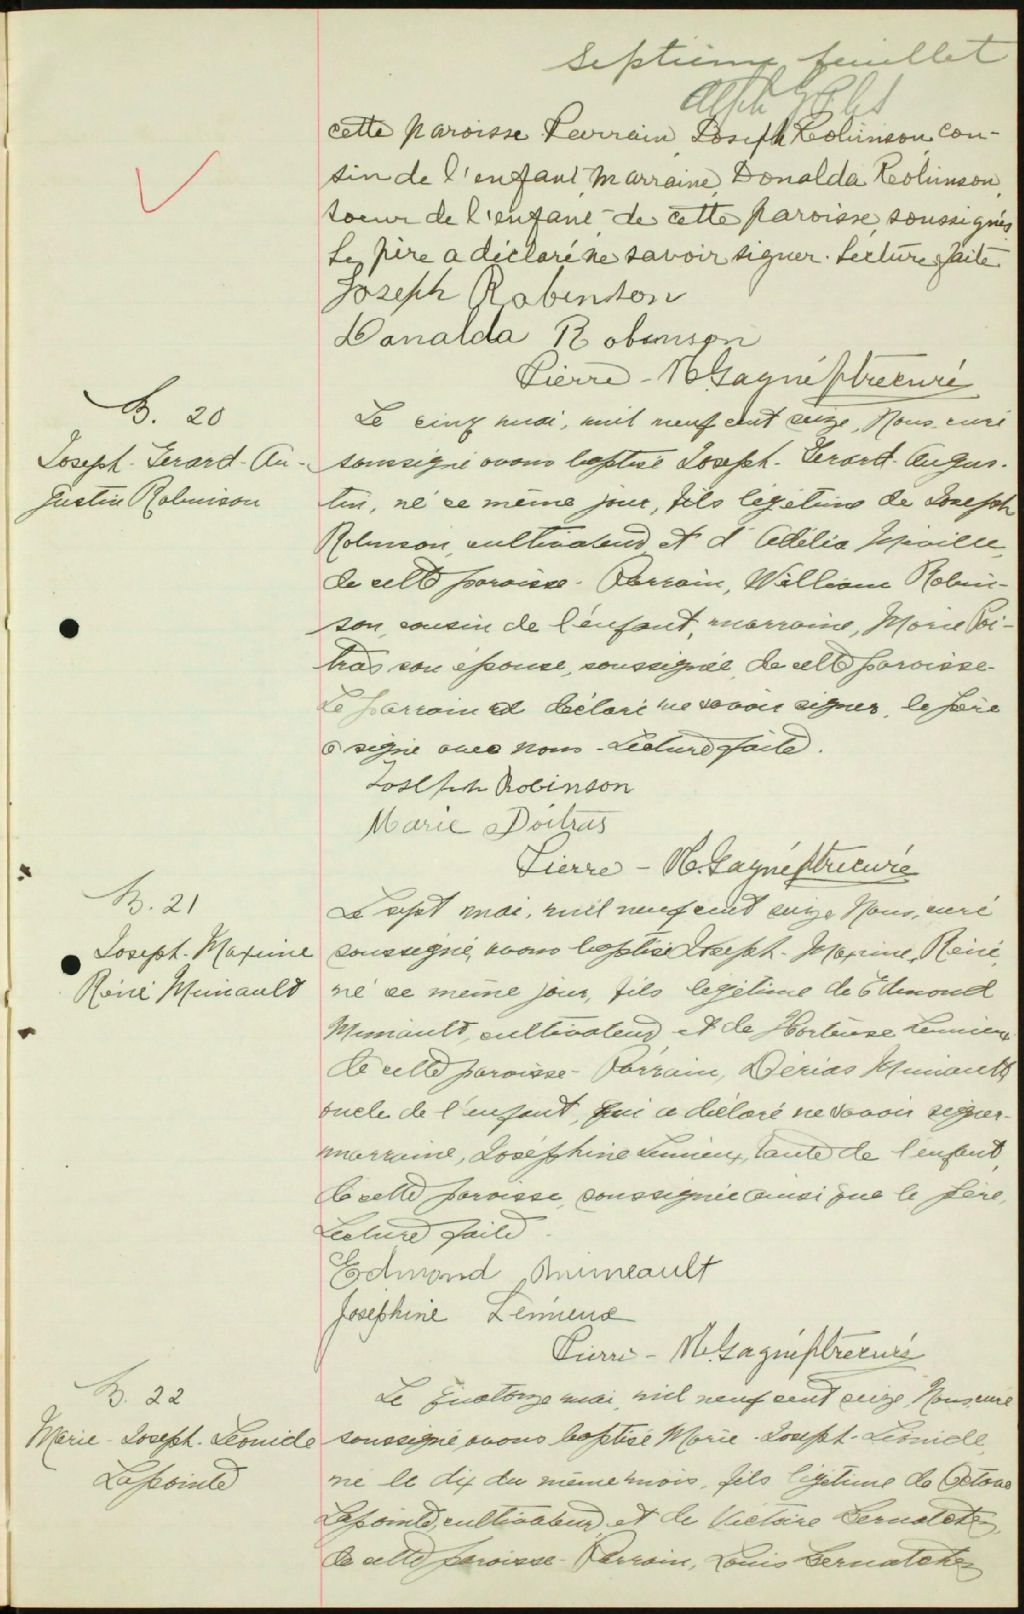 Septième feuillet
cette paroisse Parrain, Joseph Robinson, cou-
sin de l'enfant, Marraine, Donalda Robinson,
soeur de l'enfant de cette paroisse, soussignés
Le père a déclaré ne savoir signer. Lecture faite
Joseph Robinson
Donalda Robinson
Pierre - N. Gagné ptre curé
B. 20
Joseph - Gerard - Au-
gustin Robinson
Le cinq mai, mil neuf cent seize, Nous, curé
soussigné avons baptisé Joseph - Gerard - Augus-
tin, né ce même jour, fils légitime de Joseph
Robinson, cultivateur, et d'Adélia Miville,
de cette paroisse - Parrain, William Robin-
son, cousin de l'enfant, marraine, Marie Poi-
tras son épouse, soussignée, de cette paroisse -
Le parrain a déclaré ne savoir signer, le père
a signé avec nous - Lecture faite.
Joseph Robinson
Marie Poitras
Pierre - N. Gagné ptre curé
B. 21
Joseph - Maxime
Réné Mimault
Le sept mai, mil neuf cent seize, Nous, curé
soussigné, avons baptisé Joseph - Maxime, Réné,
né ce même jour, fils légitime de Edmond
Mimault, cultivateur, et de Hortense Lemieux
de cette paroisse - Parrain, Dérias Mimault
oncle de l'enfant, qui a déclaré ne savoir signer -
marraine, Joséphine Lemieux, tante de l'enfant,
de cette paroisse, soussignée ainsi que le père,
Lecture faite.
Edmond Mimeault
Joséphine Lemieux
Pierre - N. Gagné ptre curé
B. 22
Marie - Joseph - Léonide
Lapointe
Le quatorze mai, mil neuf cent seize, Nous, curé
soussigné, avons baptisé Marie - Joseph - Léonide,
né le dix du même mois, fils légitime de Octave
Lapointe, cultivateur, et de Victoire Bernatchez,
de cette paroisse - Parrain, Louis Bernatchez